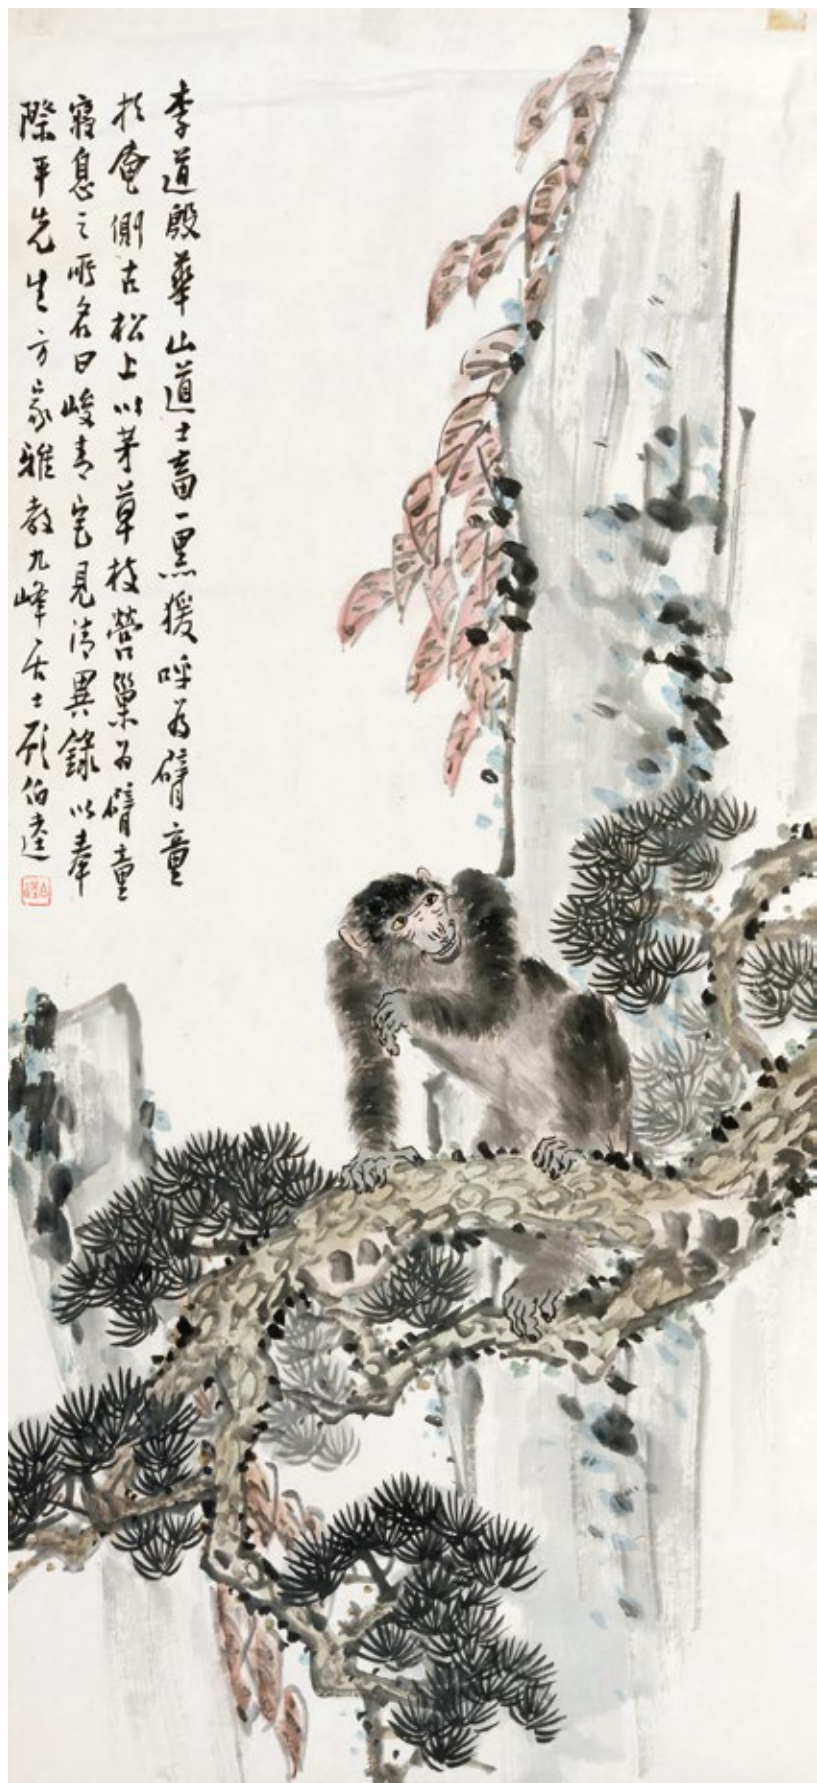 李道殷華山道士畜一黑猨呼為臂童
於庵側古松上以茅草枝營巢為臂童
寢息之所名曰峻青宅見清異錄以奉
際平先生方家雅教九峰居士顧伯逵